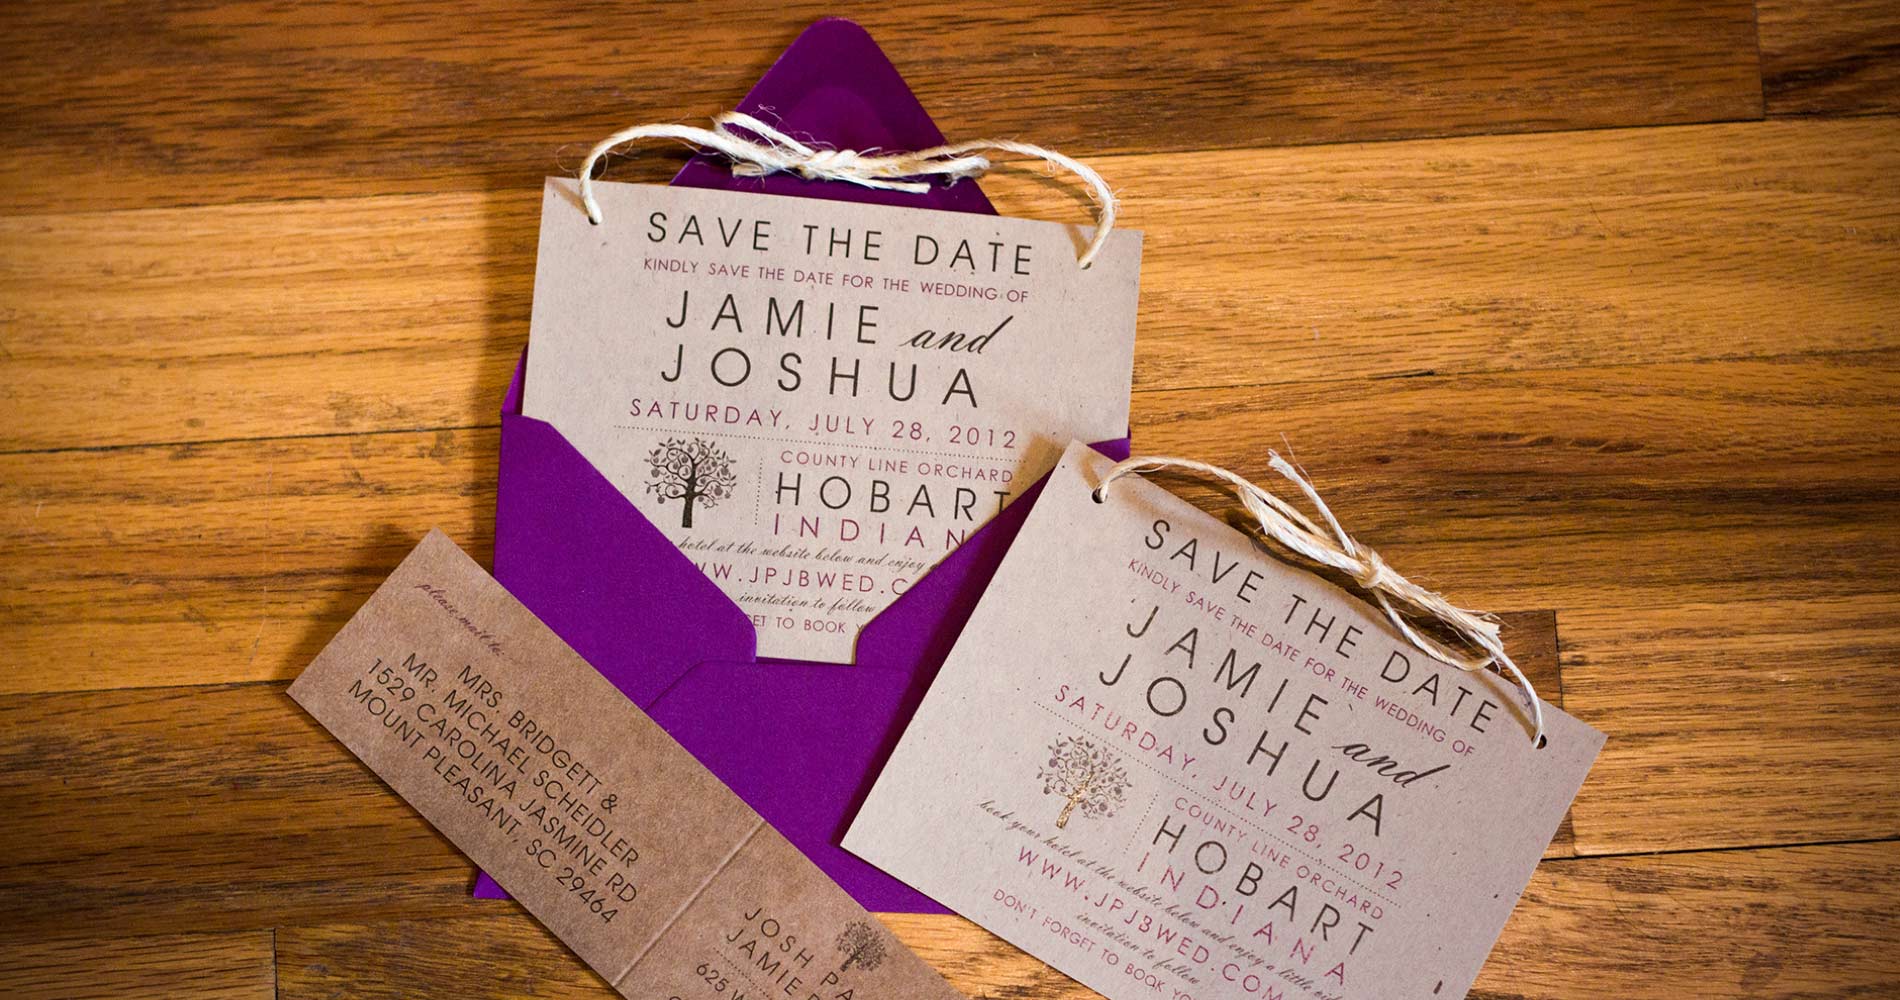 SAVE THE DATE
KINDLY SAVE THE DATE FOR THE WEDDING OF
JAMIE and
JOSHUA
SATURDAY, JULY 28, 2012
COUNTY LINE ORCHARD
HOBART
INDIAN
hotel at the website below and enjoy
WW.JPJBWED.C
invitation to follow
ET TO BOOK Y
SAVE THE DATE
KINDLY SAVE THE DATE FOR THE WEDDING OF
JAMIE and
JOSHUA
SATURDAY, JULY 28, 2012
COUNTY LINE ORCHARD
HOBART
INDIANA
book your hotel at the website below and enjoy a little
WWW.JPJBWED.COM
invitation to follow
DON'T FORGET TO BOOK YO
please mail to:
MRS. BRIDGETT &
MR. MICHAEL SCHEIDLER
1529 CAROLINA JASMINE RD
MOUNT PLEASANT, SC 29464
JOSH PA
JAMIE
625 W